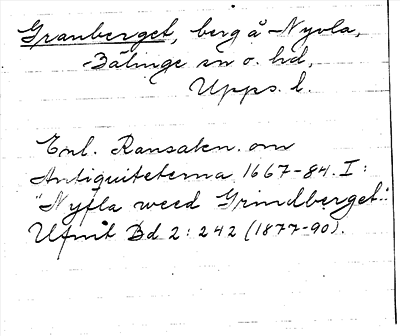 Granberget, berg å Nyvla,
Bälinge sn o. hd,
Upps. l.
Enl. Ransakn. om
Antiquiteterna 1667-84. I:
"Nyfla weed Grindberget".
Ufmt Bd 2: 242 (1877-90).